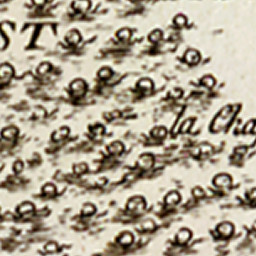 ST
la Cha